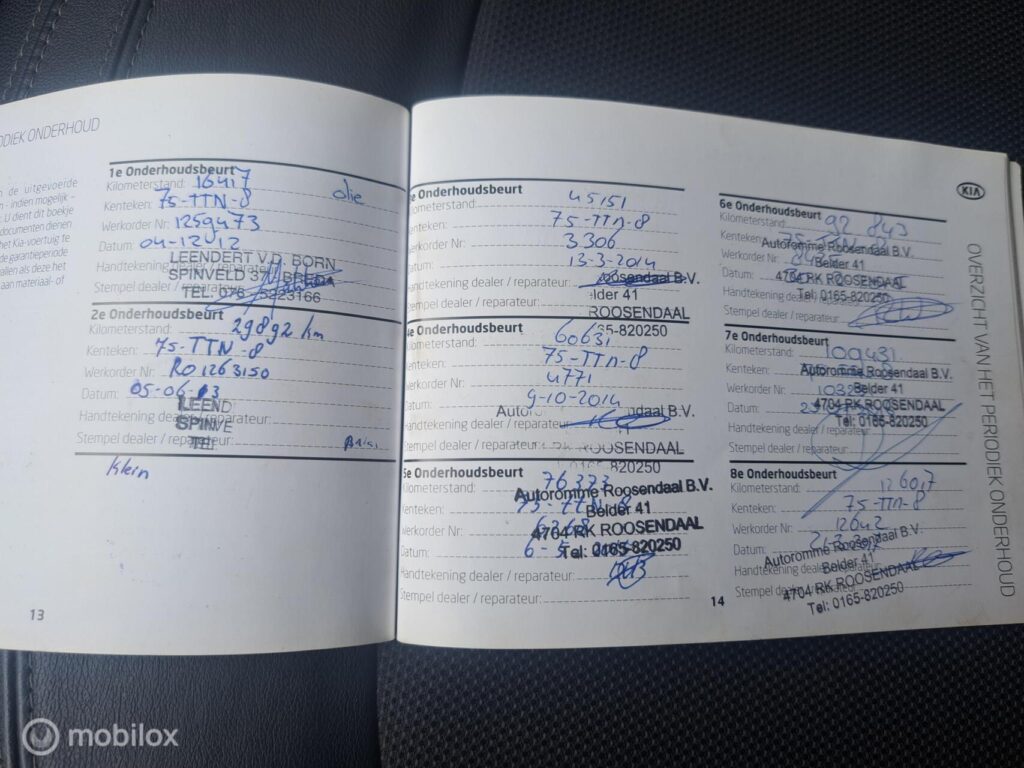 ODIEK ONDERHOUD
n de uitgevoerde
n - indien mogelijk -
U dient dit boekje
documenten dienen
het Kia-voertuig te
de garantieperiode
allen als deze het
aan materiaal- of
1e Onderhoudsbeurt
Kilometerstand: 16417 olie
Kenteken: 75-TTN-8
Werkorder Nr: 1259473
Datum: 04-12-12
LEENDERT V.D. BORN
Handtekening dealer / reparateur:
SPINVELD 37 BREDA
Stempel dealer / reparateur:
TEL. 076-5223166
2e Onderhoudsbeurt
Kilometerstand: 29892 km
Kenteken: 75-TTN-8
Werkorder Nr: RO1263150
Datum: 05-06-13
LEEND
Handtekening dealer / reparateur:
SPINVE
Stempel dealer / reparateur:
TEL
Klein
13
e Onderhoudsbeurt
ometerstand: 45151
enteken: 75-TTN-8
erkorder Nr: 3306
atum: 13-3-2014
andtekening dealer / reparateur: Roosendaal B.V.
elder 41
tempel dealer / reparateur: ROOSENDAAL
65-820250
4e Onderhoudsbeurt
Kilometerstand: 60631
Kenteken: 75-TTN-8
Werkorder Nr: 4771
Datum: 9-10-2014
Autor ndaal B.V.
Handtekening dealer / reparateur:
Stempel dealer / reparateur: RK ROOSENDAAL
0165-820250
5e Onderhoudsbeurt
Kilometerstand: 76373
Autoromme Roosendaal B.V.
Kenteken: 75-TTN-8
Belder 41
Werkorder Nr: 6268
4704 RK ROOSENDAAL
Datum: 6-5-
Tel: 0165-820250
Handtekening dealer / reparateur:
Stempel dealer / reparateur:
14
6e Onderhoudsbeurt
Kilometerstand: 92 843
Kenteken: 75-
Autoromme Roosendaal B.V.
Werkorder Nr:
Belder 41
Datum:
4704 RK ROOSENDAAL
Handtekening dealer
Tel: 0165-820250
Stempel dealer / reparateur:
7e Onderhoudsbeurt
Kilometerstand: 109431
Kenteken:
Autoromme Roosendaal B.V.
Werkorder Nr:
Belder 41
Datum:
4704 RK ROOSENDAAL
Tel: 0165-820250
Handtekening dealer / reparateur:
Stempel dealer / reparateur:
8e Onderhoudsbeurt
Kilometerstand: 12607
Kenteken: 75-TTN-8
Werkorder Nr: 12642
Datum:
Autoromme Roosendaal B.V.
Handtekening dealer
Belder 41
4704 RK ROOSENDAAL
Stempel dealer / reparateur:
Tel: 0165-820250
KIA
OVERZICHT VAN HET PERIODIEK ONDERHOUD
mobilox